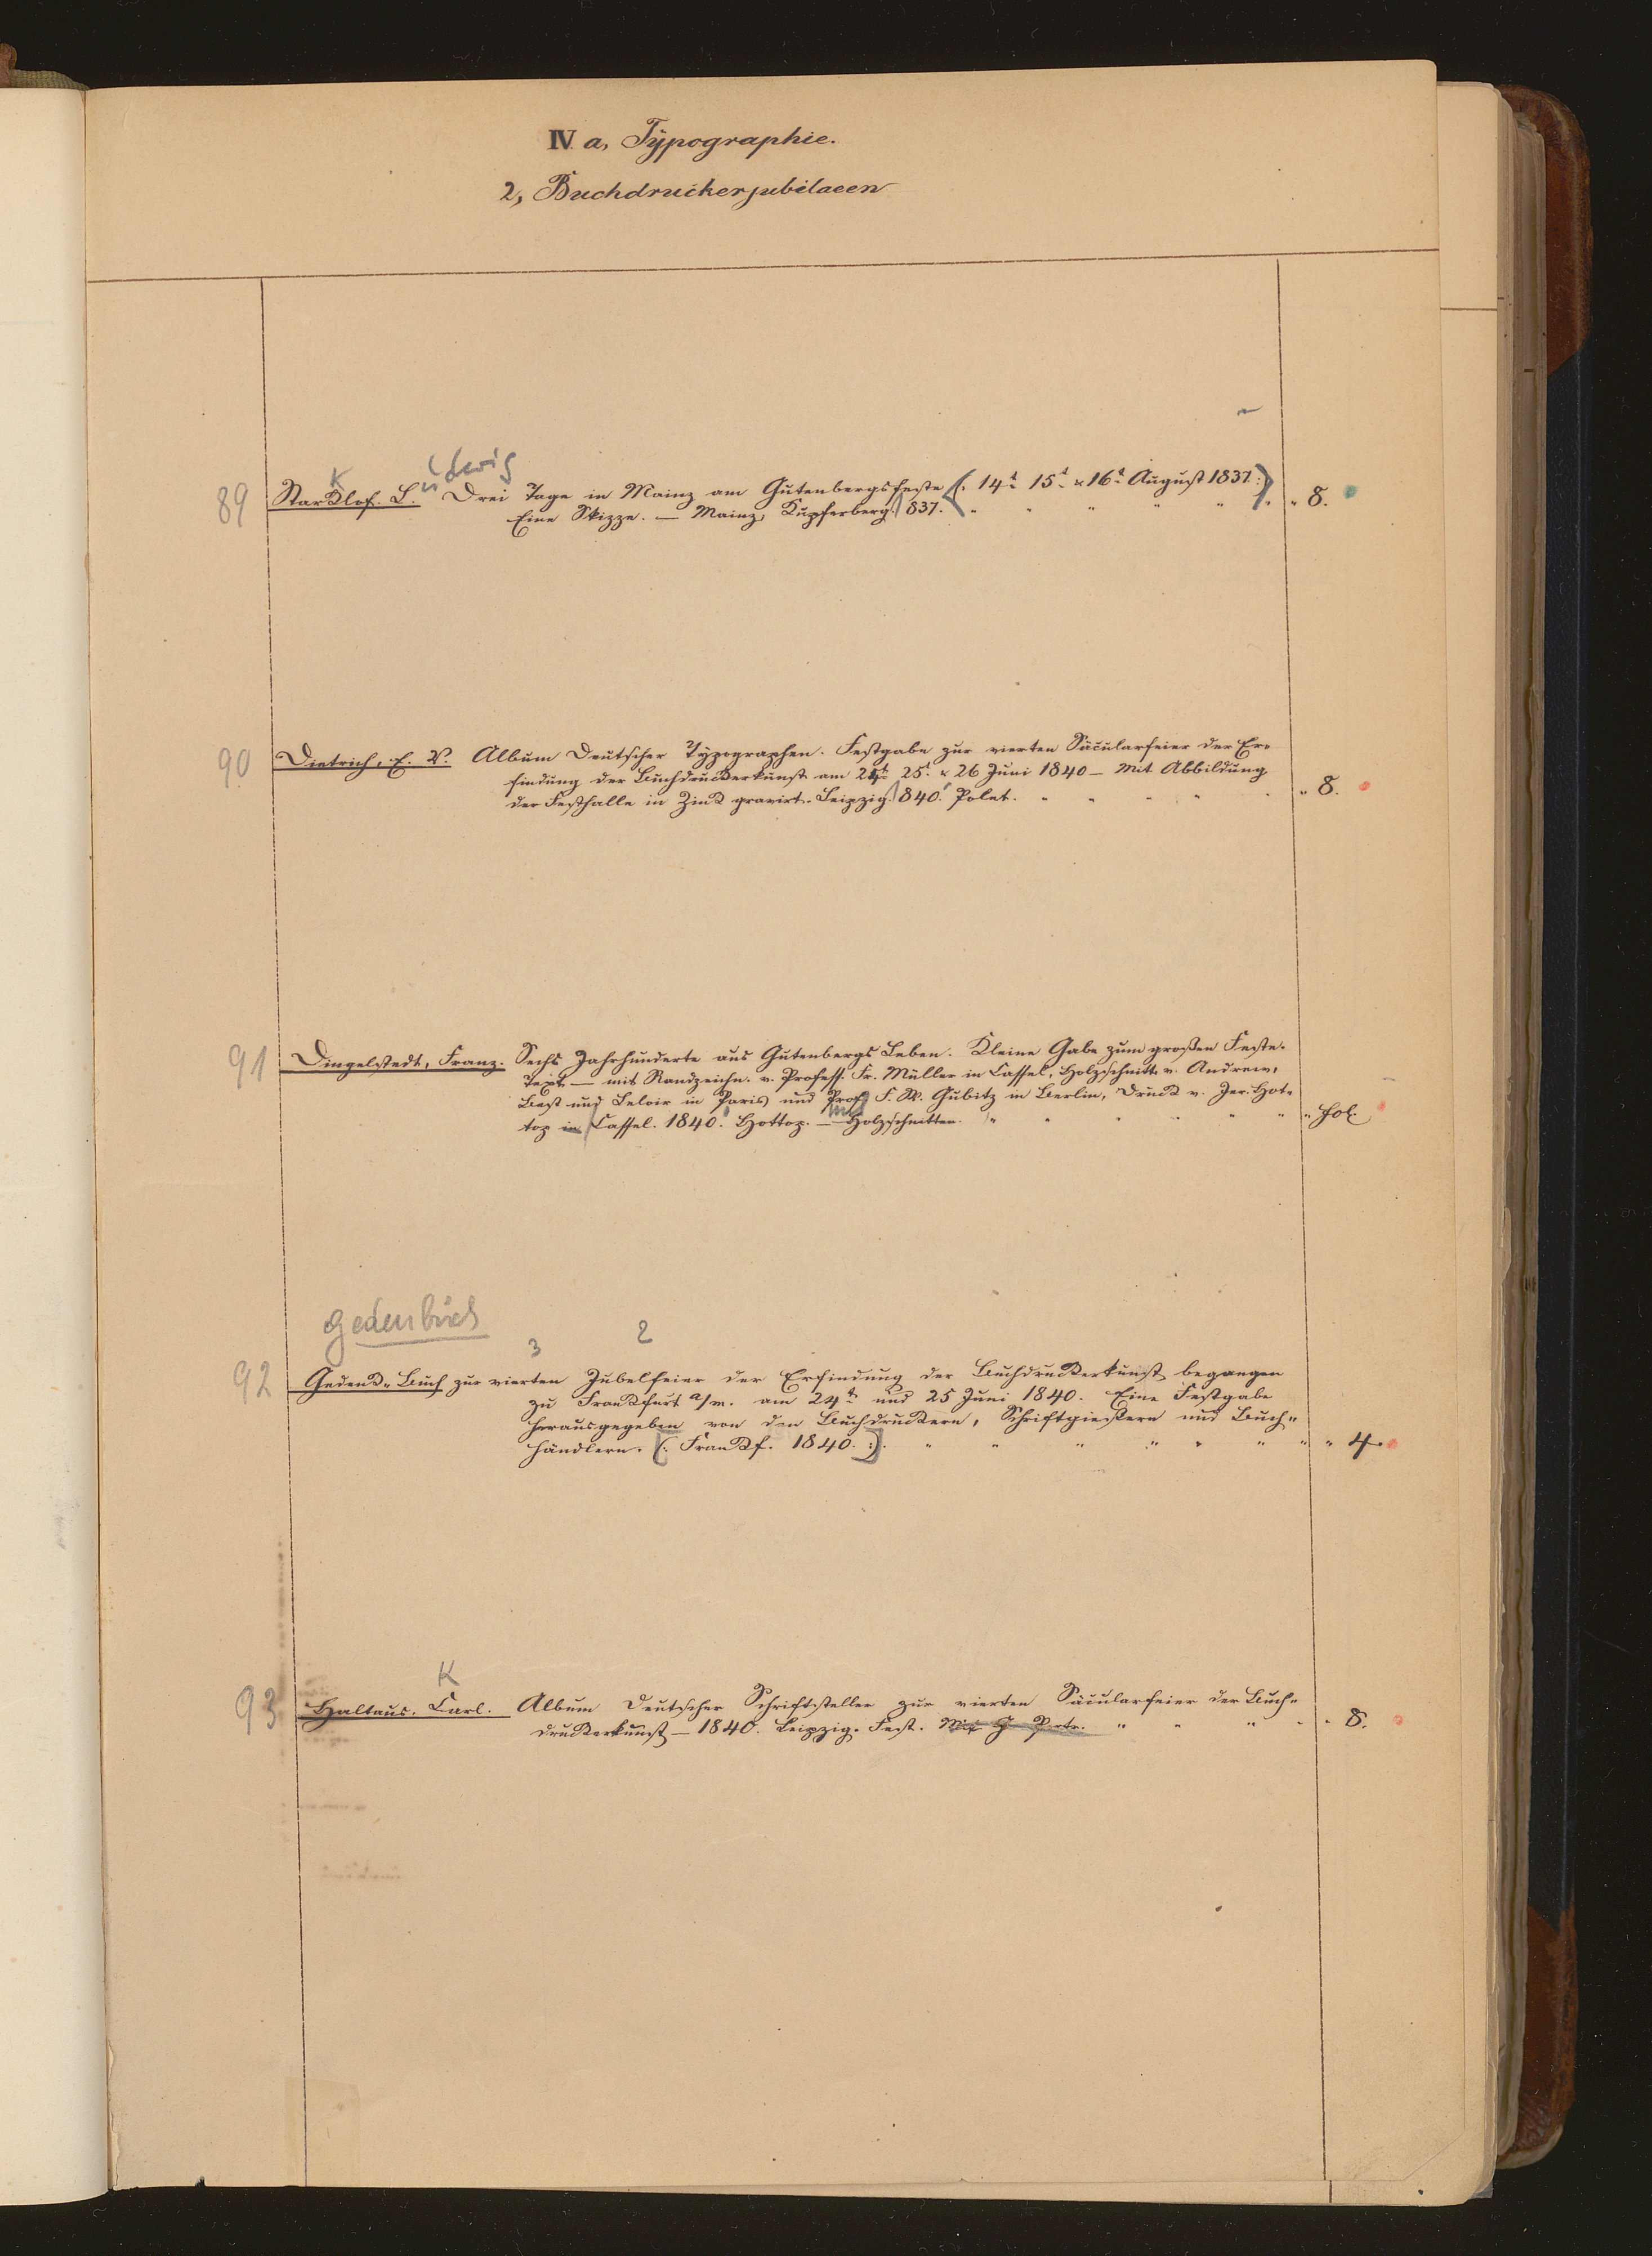 IV a, Typographie.
2, Buchdruckerjubilaeen
K udwig
89 Starklof. L. Drei Tage in Mainz am Gutenbergsfeste (: 14t 15t & 16t August 1837 :)
Eine Skizze. — Mainz, Kupferberg. 1837. " " " " " " 8.
90 Dietrich, E. V. Album Deutscher Typographen. Festgabe zur vierten Säcularfeier der Er-
findung der Buchdruckerkunst am 24t 25t & 26 Juni 1840 — Mit Abbildung
der Festhalle in Zink gravirt. Leipzig. 1840. Polet. " " " " " " 8.
91 Dingelstedt, Franz. Sechs Jahrhunderte aus Gutenbergs Leben. Kleine Gabe zum großen Feste.
Text — mit Randzeichn. v. Profess. Fr. Müller in Cassel, Holzschnitte v. Andrew,
Best und Leloir in Paris und Prof. F. W. Gubitz in Berlin, Druck v. Jer. Hot-
top in Cassel. 1840. Hottop. — Mit Holzschnitten. " " " " " " fol.
Gedenbuch
3 2
92 Gedenk-Buch zur vierten Jubelfeier der Erfindung der Buchdruckerkunst begangen
zu Frankfurt a/m. am 24t und 25 Juni 1840. Eine Festgabe
herausgegeben von den Buchdruckern, Schriftgießern und Buch-
händlern. (: Frankf. 1840. :). " " " " " " " " 4.
K
93 Haltaus, Carl. Album Deutscher Schriftsteller zur vierten Säcularfeier der Buch-
druckerkunst — 1840. Leipzig. Fest. Mit G Portr. " " " " " 8.